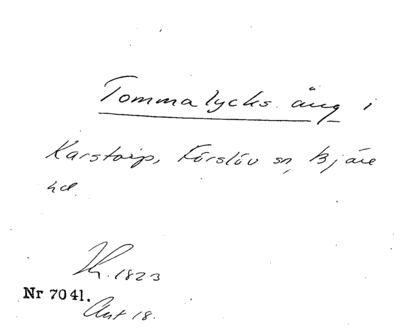 Tommalycks äng i
Karstorp, Förslöv sn, Bjäre
hd.
1823
Nr 7041.
Akt 18.